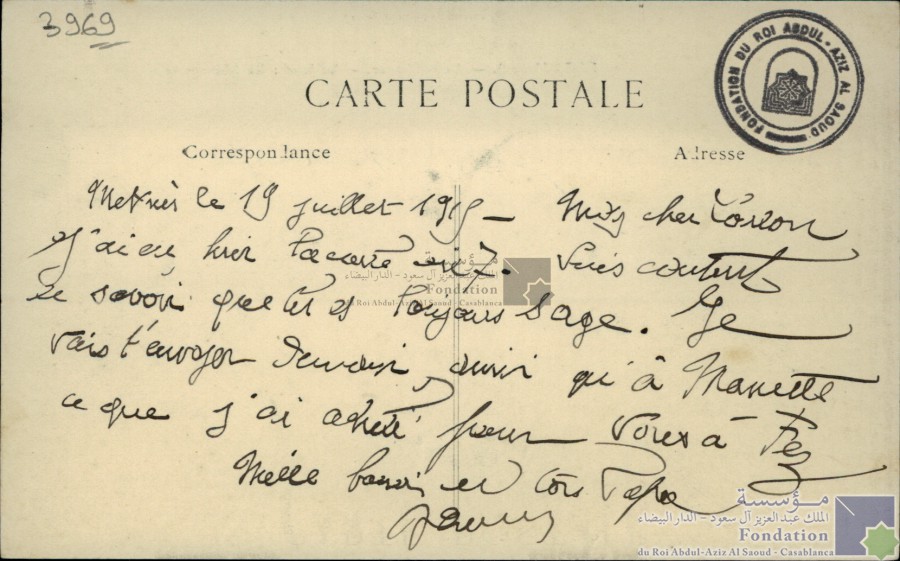 3969
FONDATION DU ROI ABDUL-AZIZ AL SAOUD
CARTE POSTALE
Correspondance
Adresse
le 19 juillet 191 – Mon cher
J'ai eu hier ta carte Suis content
de savoir que tu es toujours sage. Je
vais t'envoyer demain, ainsi qu'à
ce que j'ai acheté pour vous à Fez
Mille baisers de ton Papa
مؤسسة
الملك عبد العزيز آل سعود - الدار البيضاء
Fondation
du Roi Abdul-Aziz Al Saoud - Casablanca
مؤسسة
الملك عبد العزيز آل سعود - الدار البيضاء
Fondation
du Roi Abdul-Aziz Al Saoud - Casablanca